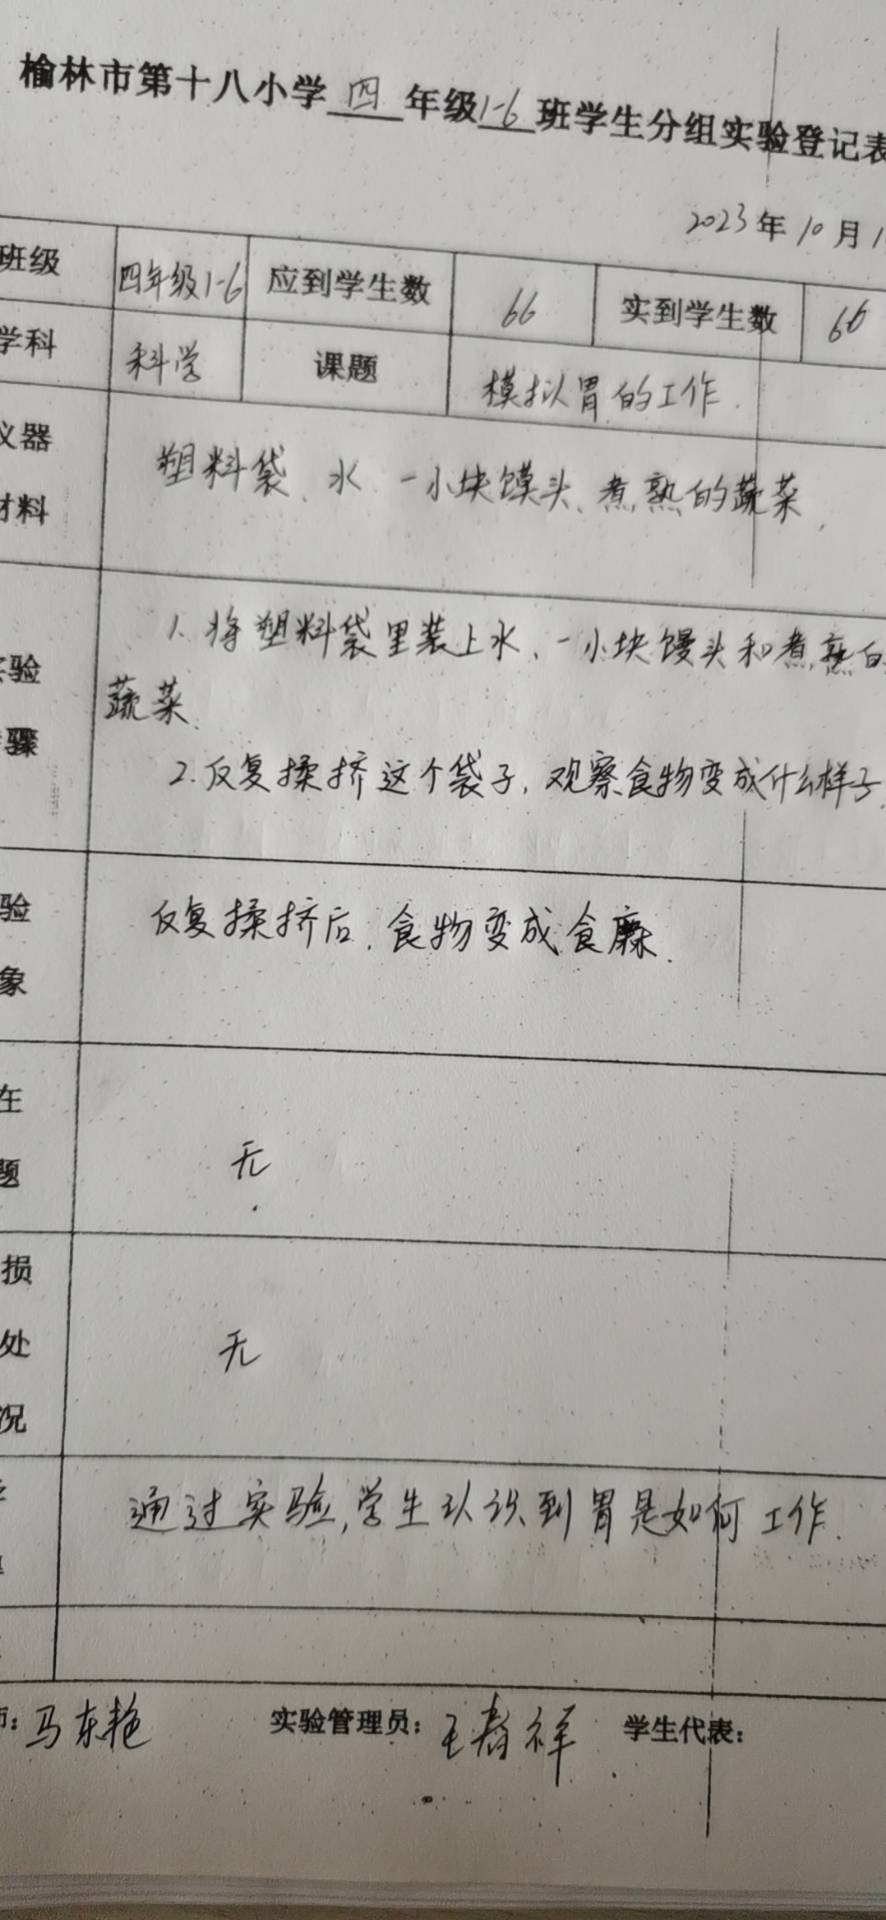 榆林市第十八小学四年级1-6班学生分组实验登记表
2023年10月1
班级 四年级1-6 应到学生数 66 实到学生数 66
学科 科学 课题 模拟胃的工作.
仪器
材料
塑料袋、水、一小块馍头、煮熟的蔬菜.
实验
骤
1. 将塑料袋里装上水、一小块馒头和煮熟的
蔬菜.
2. 反复揉挤这个袋子,观察食物变成什么样子.
验
象
反复揉挤后,食物变成食糜.
在
题
无
损
处
况
无
通过实验,学生认识到胃是如何工作.
师:马东艳 实验管理员:王 祥 学生代表: